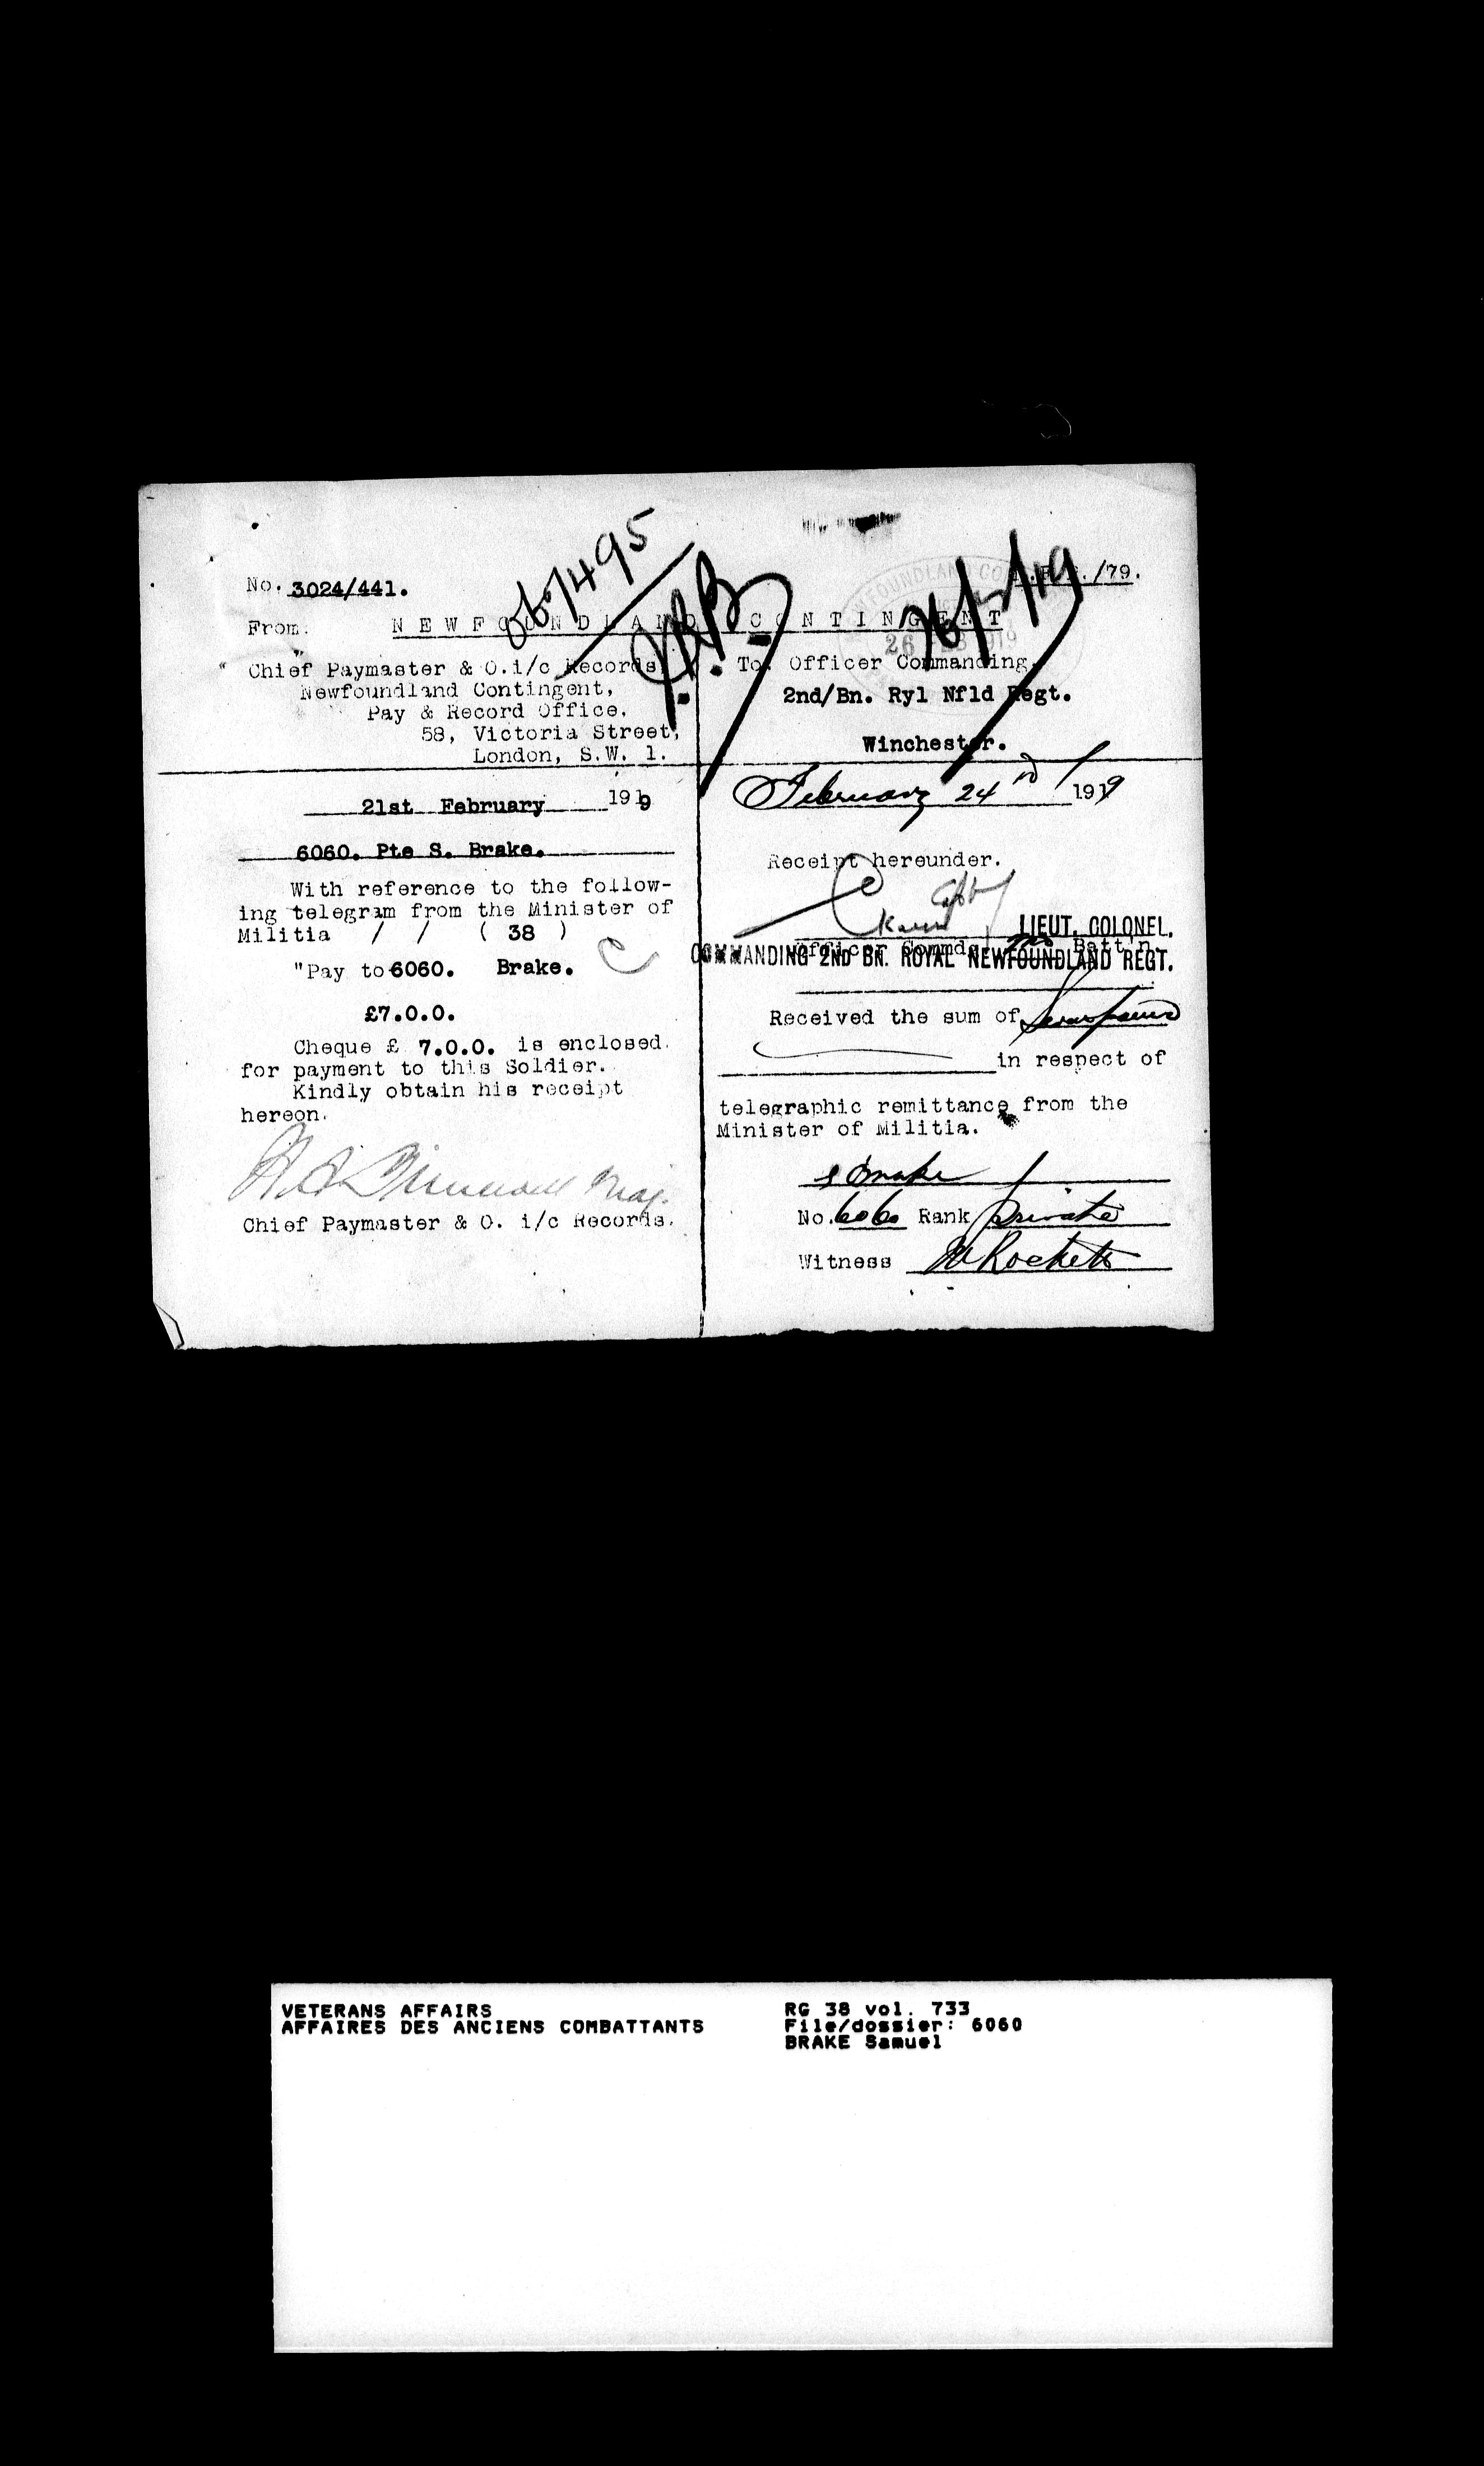 No. 3024/441.
/79.
NEWFOUNDLAND CONTINGENT
From:
Chief Paymaster & O.i/c Records
Newfoundland Contingent,
Pay & Record Office,
58, Victoria Street,
London, S.W. 1.
To. Officer Commanding,
2nd/Bn. Ryl Nfld Regt.
Winchester.
26/2/19
21st February 1919
6060. Pte S. Brake.
With reference to the follow-
ing telegram from the Minister of
Militia / / ( 38 )
"Pay to 6060. Brake.
£7.0.0.
Cheque £ 7.0.0. is enclosed.
for payment to this Soldier.
Kindly obtain his receipt
hereon.
Maj.
Chief Paymaster & O. i/c Records.
February 24 nd 1919
Receipt hereunder.
LIEUT. COLONEL.
Officer Commdg Batt'n.
COMMANDING 2ND BN. ROYAL NEWFOUNDLAND REGT.
Received the sum of
in respect of
telegraphic remittance from the
Minister of Militia.
No. 6060 Rank Private
Witness W Rocketts
VETERANS AFFAIRS
AFFAIRES DES ANCIENS COMBATTANTS
RG 38 vol. 733
File/dossier: 6060
BRAKE Samuel